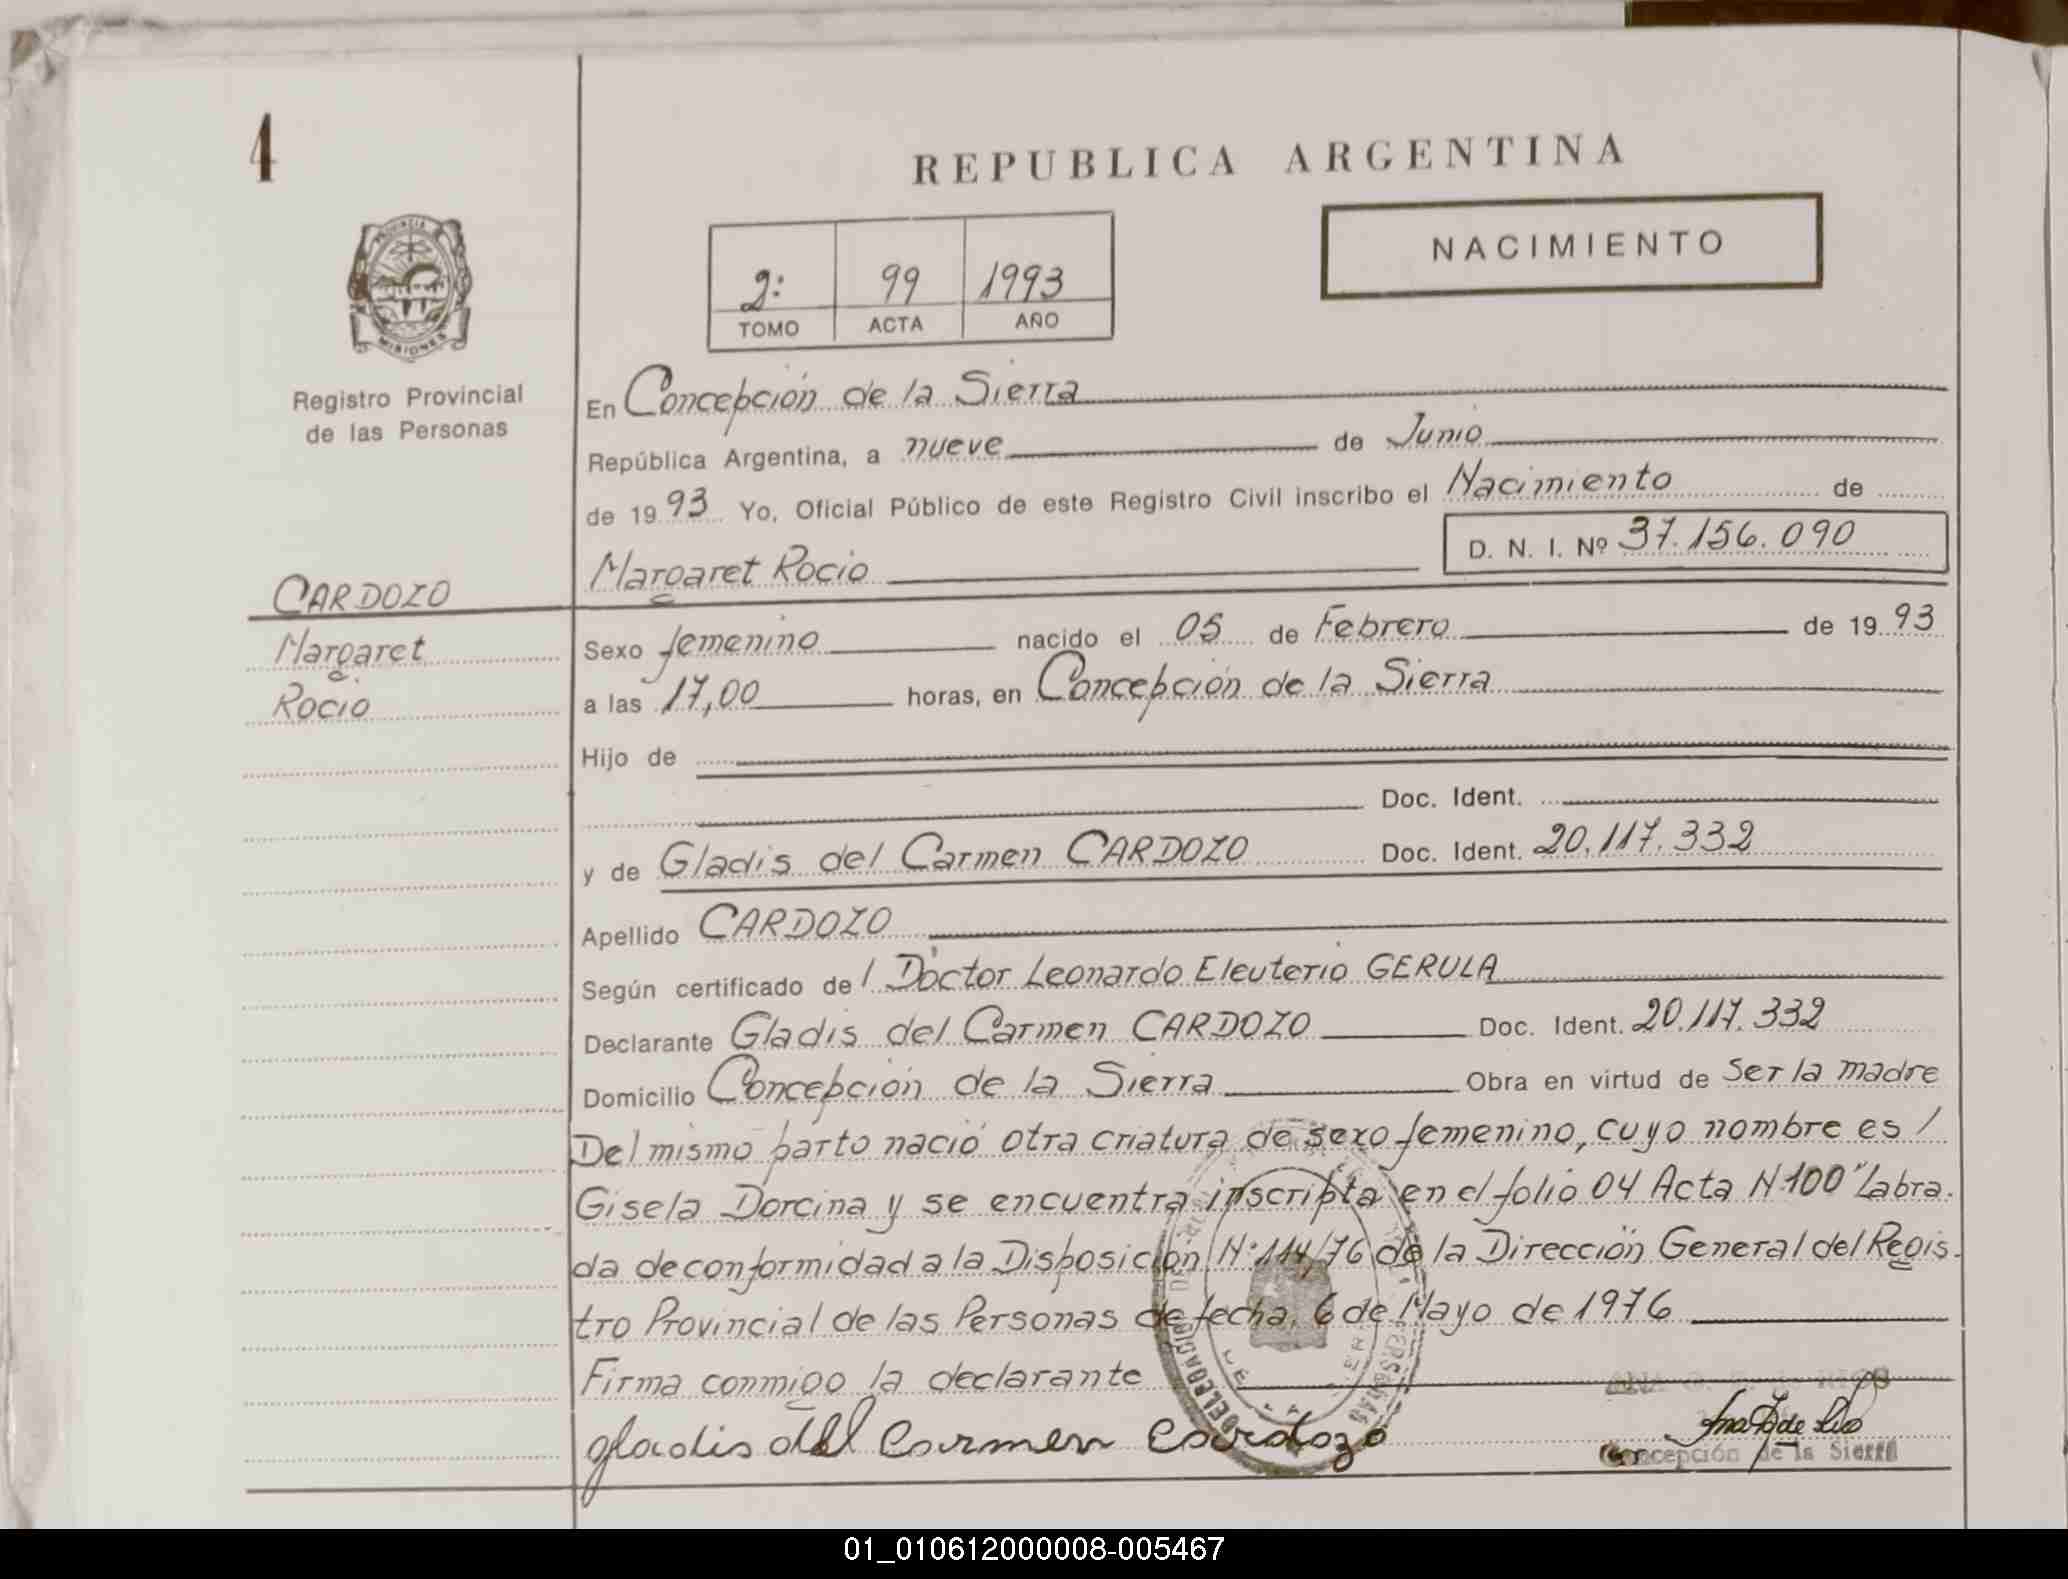 4
REPUBLICA ARGENTINA
NACIMIENTO
2: 99 1993
TOMO ACTA AÑO
PROVINCIA
MISIONES
Registro Provincial
de las Personas
En Concepción de la Sierra
República Argentina, a nueve de Junio
de 1993 Yo, Oficial Público de este Registro Civil inscribo el Nacimiento de
D. N. I. Nº 37.156.090
Margaret Rocio
CARDOZO
Margaret
Rocio
Sexo femenino nacido el 05 de Febrero de 1993
a las 17,00 horas, en Concepción de la Sierra
Hijo de
Doc. Ident.
y de Gladis del Carmen CARDOZO Doc. Ident. 20.117.332
Apellido CARDOZO
Según certificado de l Doctor Leonardo Eleuterio GERULA
Declarante Gladis del Carmen CARDOZO Doc. Ident. 20.117.332
Domicilio Concepción de la Sierra Obra en virtud de ser la madre
Del mismo parto nació otra criatura de sexo femenino, cuyo nombre es /
Gisela Dorcina y se encuentra inscripta en el folio 04 Acta Nº100" Labra.
da de conformidad a la Disposición N:114/76 de la Dirección General del Regis.
tro Provincial de las Personas de fecha, 6 de Mayo de 1976
Firma conmigo la declarante
gladis del Carmen Cardozo
Concepción de la Sierra
01_010612000008-005467